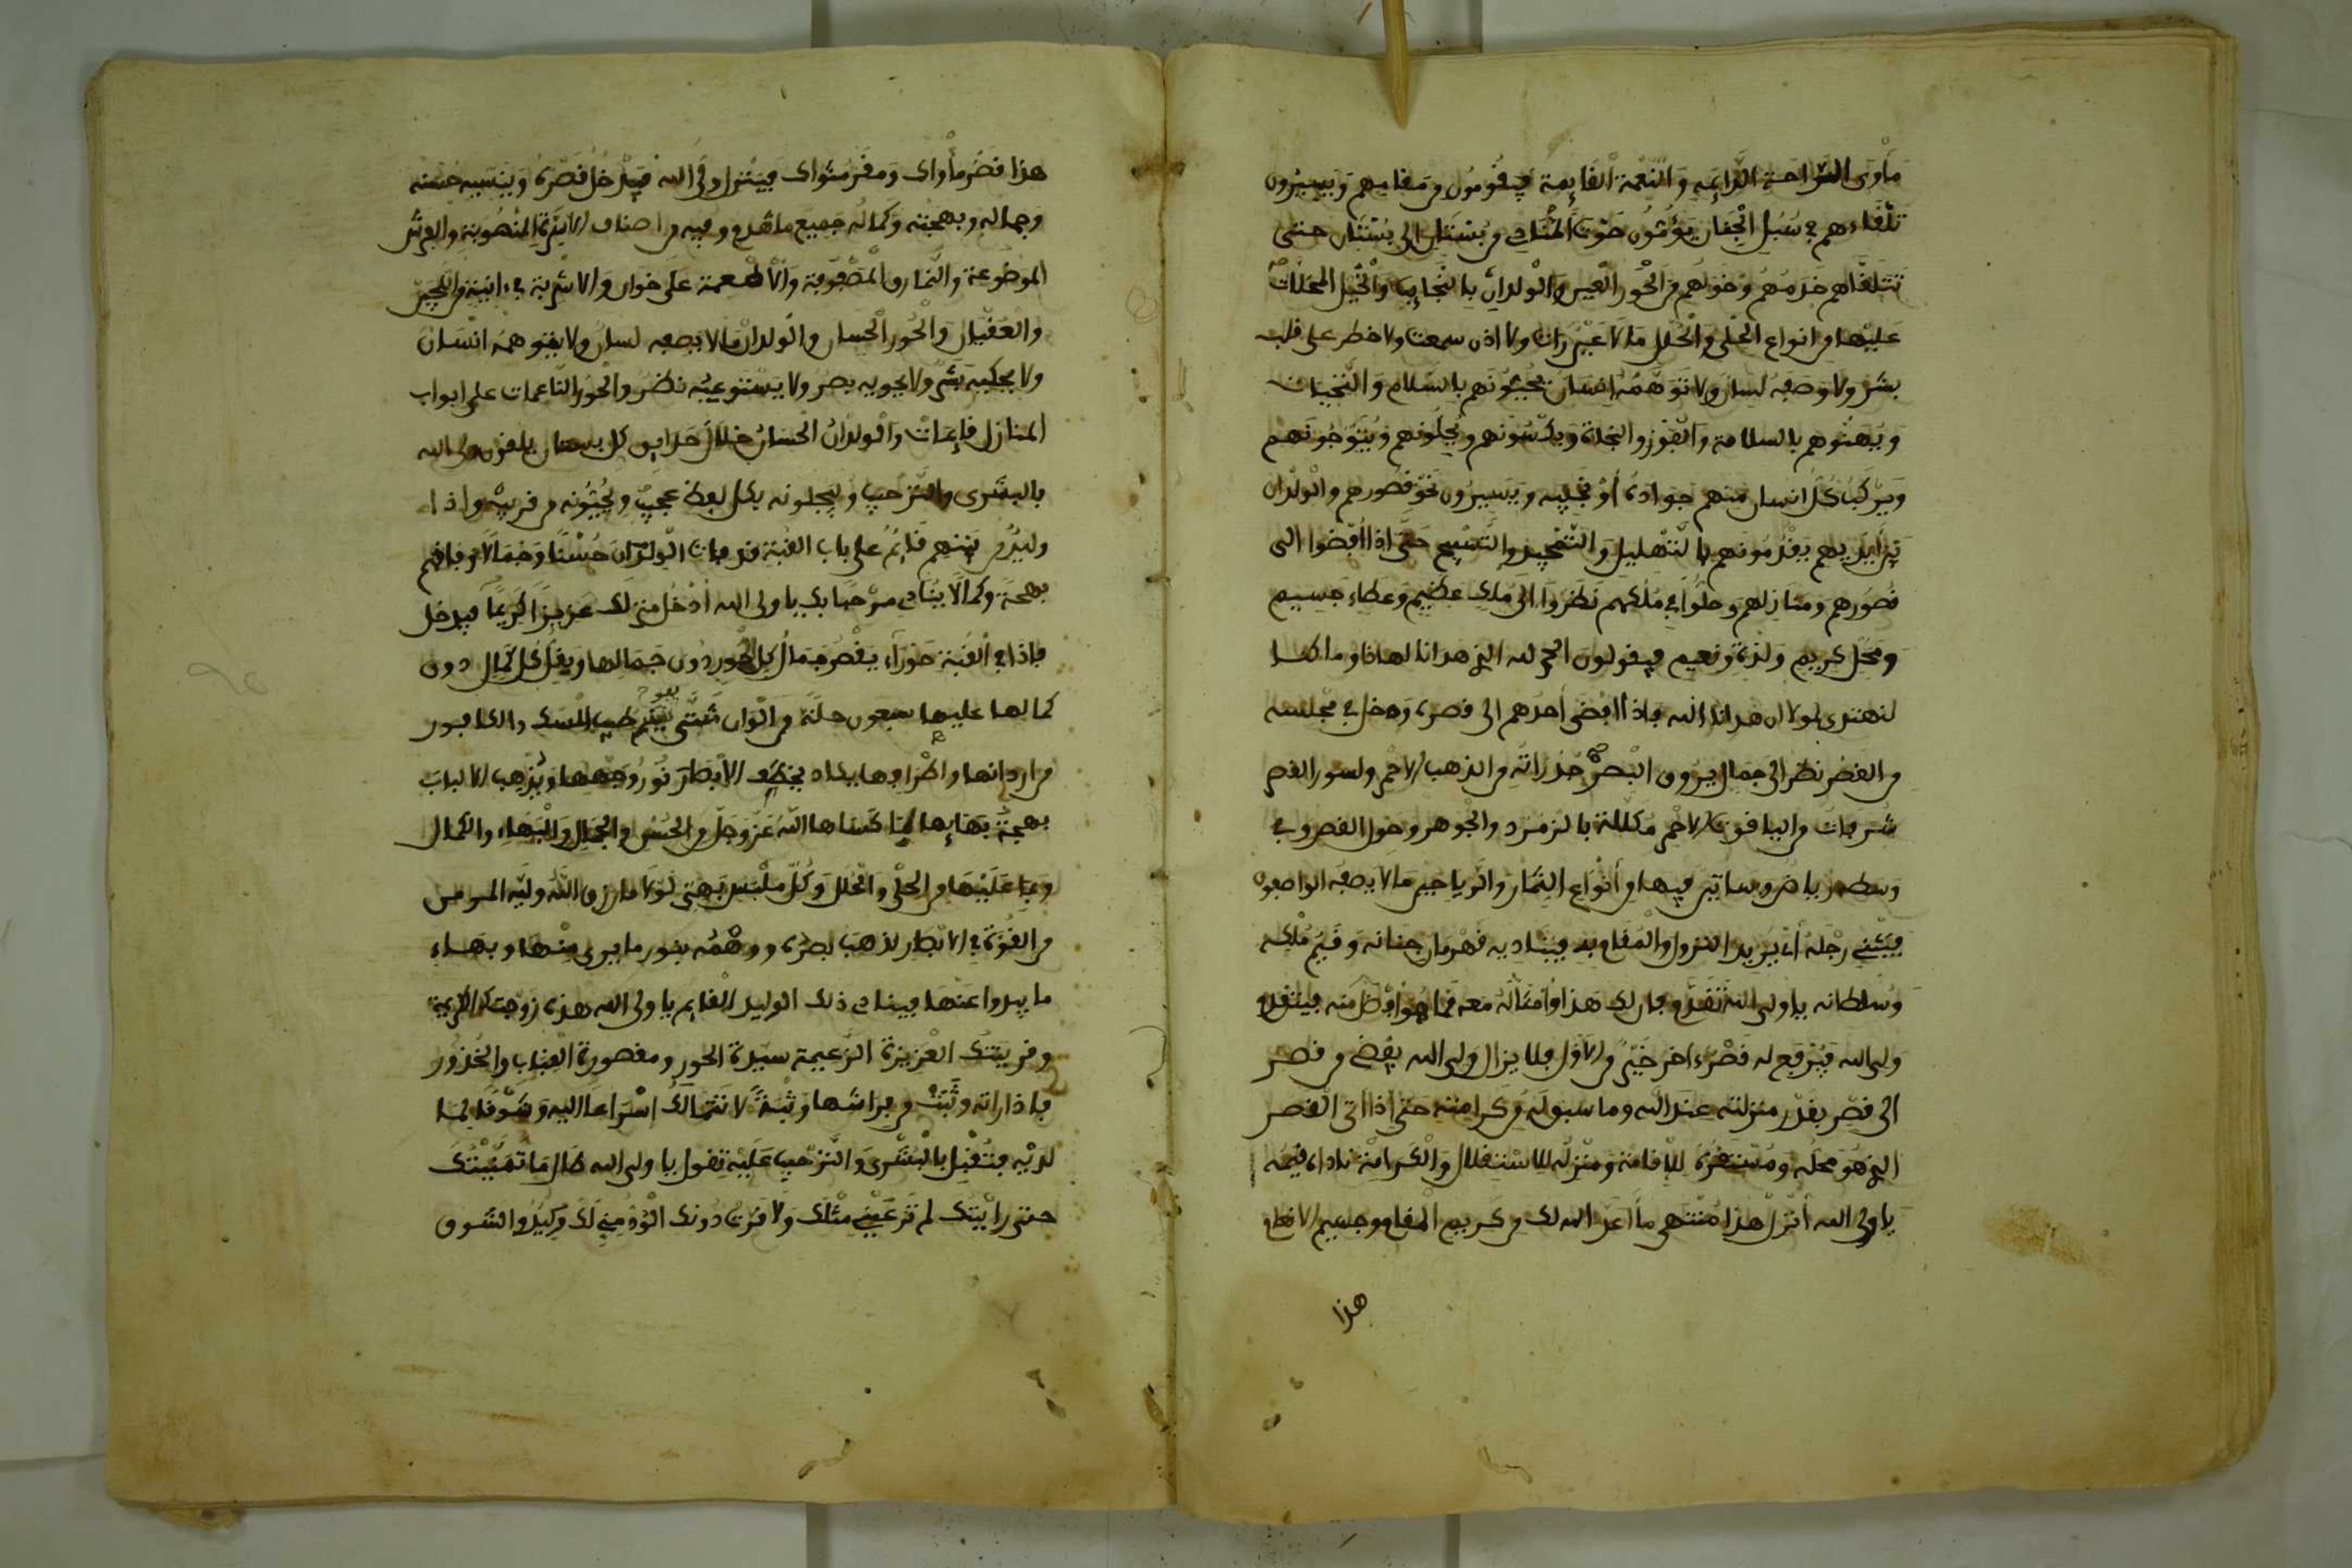 مأوى الراحة الدايمة والنعمة القايمة فيقومون من مقامهم ويسيرون
تلقاءهم في سبل الجنان يؤمون صوت المنادي من بستان الى بستان حتى
تتلقاهم خدمهم وخولهم من الحور العين والولدان بالنجايب والخيل المحلات
عليها من انواع الحلي والحلل ما لا عين رات ولا اذن سمعت ولا خطر على قلب
بشر ولا وصفه لسان ولا توهمه انسان يحيونهم بالسلام والتحيات
ويهنوهم بالسلامة والفوز والنجاة ويكسونهم ويحلونهم ويتوجونهم
ويركب كل انسان منهم جواده أو نجيبه ويسيرون نحو قصورهم والولدان
بين أيديهم يقدمونهم بالتهليل والتمجيد والتسبيح حتى اذا أفضوا الى
قصورهم ومنازلهم وحلوا في ملكهم نظروا الى ملك عظيم وعطاء جسيم
ومحل كريم ولذة ونعيم فيقولون الحمد لله الذي هدانا لهاذا وما كنا
لنهتدي لولا ان هدانا الله فاذا افضى أحدهم الى قصره ودخل في مجلسه
من القصر نظر الى جمال يروق البصر جدراته من الذهب الاحمر ولسور القصر
شرفات من الياقوت الاحمر مكللة بالزمرد والجوهر وحول القصر وفي
وسطه رياض وبساتين فيها من أنواع الثمار والرياحين ما لا يصفه الواصفون
فيثني رجله أي يريد النزول والمقام به فيناديه قهرمان جنانه وقيم ملكه
وسلطانه يا ولي الله تقدم فان لك هذا وأمثاله معه فما هو أفضل منه فيتقدم
ولي الله فيرفع له قصر ءاخر خير من الاول فلا يزال ولي الله يفضي من قصر
الى قصر بقدر منزلته عند الله وما سبق له من كرامته حتى اذا اتى القصر
الذي هو محله ومستقره للإقامة ومنزله للاستقلال والكرامة ناداه قيمه
يا ولي الله أنزل هذا منتهى ما أعد الله لك من كريم المقام وجسيم الانعام
هذا
هذا قصر مأواك ومقر مثواك فينزل ولي الله فيدخل قصره وينسيه حسنه
وجماله وبهجته وكماله جميع ما تقدم وفيه من اصناف الاسرة المنصوبة والفرش
الموضوعة والنمارق المصفوفة والأطعمة على خوان والاشربة في ءانية من اللجين
والعقيان والحور الحسان والولدان ما لا يصفه لسان ولا يتوهمه انسان
ولا يحكيه بشر ولا يحويه بصر ولا يستوعبه نظر والحور الناعمات على ابواب
المنازل قايمات والولدان الحسان خلال حدايق كل بستان يلقون ولي الله
بالبشرى والترحيب ويبجلونه بكل لفظ عجيب ويحيونه من قريب واذا
وليد من بينهم قايم على باب القبة قد فات الولدان حسنا وجمالا وفاقهم
بهجة وكمالا ينادي مرحبا بك يا ولي الله أدخل منزلك عزيزا كريما فيدخل
فاذا في القبة حوراء يقصر جمال كل الحور دون جمالها ويقل كل كمال دون
كمالها عليها سبعون حلة من الوان شتى يفوح طيب المسك والكافور
من اردانها واطرافها يكاد يخطف الابصار نور وجهها ويذهب الالباب
بهجة بهايها لما كساها الله عز وجل من الحسن والجمال والبهاء والكمال
وبما عليها من الحلي والحلل وكل ملبس بهي لولا ما رزق الله وليه المومن
من القوة في الابصار لذهب بصره ووهمه بنور ما يرى منها وبهاء
ما يبدوا عنها فينادي ذلك الوليد القايم يا ولي الله هذه زوجتك الكريمة
وقرينتك العزيزة الزعيمة سيدة الحور ومقصورة القباب والخدور
فاذا راته وثبت من فراشها وثبة لا تتمالك إسراعا اليه وشوقا لما
لديه فتقبل بالبشرى والترحيب عليه تقول يا ولي الله طال ما تمنيتك
حتى رايتك لم تر عيني مثلك ولا قرت دونك الود مني لك وكيد والشوق